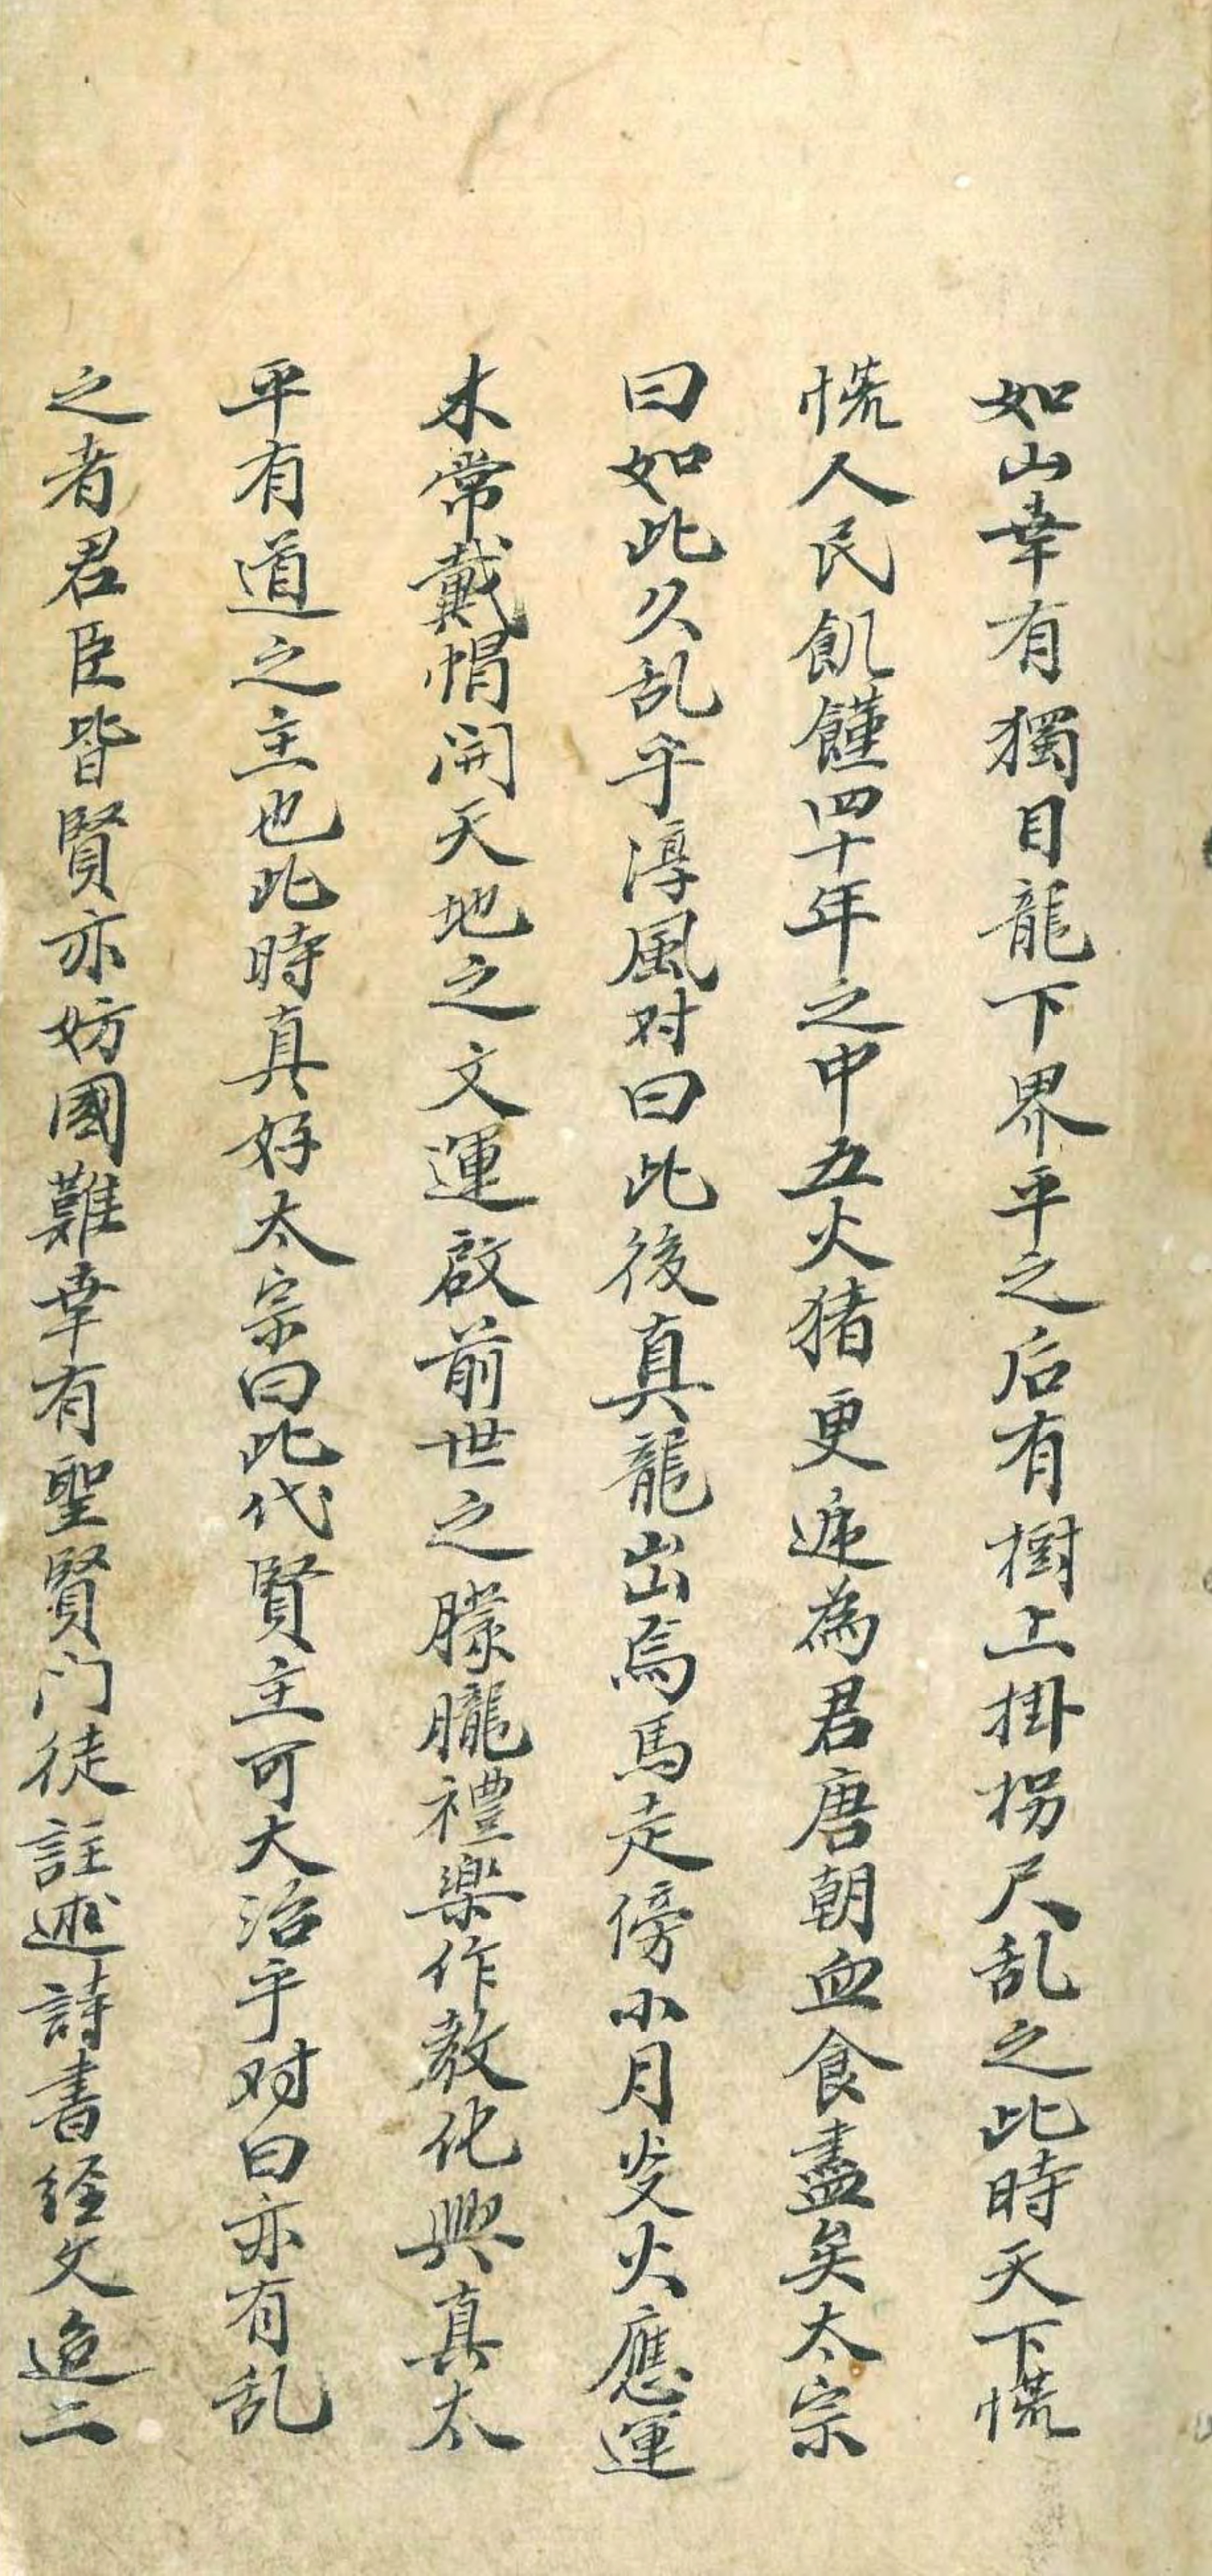 如山幸有獨目龍下界平之后有樹上掛拐尺乱之此時天下慌
慌人民飢饉四十年之中五火猪更迯為君唐朝血食盡矣太宗
曰如此久乱乎淳風对曰此後真龍出焉馬走傍小月爻火應運
木常戴帽開天地之文運啟前世之朦朧禮楽作教化興真太
平有道之主也此時真好太宗曰此代賢主可大治乎对曰亦有乱
之者君臣皆賢亦妨國難幸有聖賢门徒註述詩書经文迨二